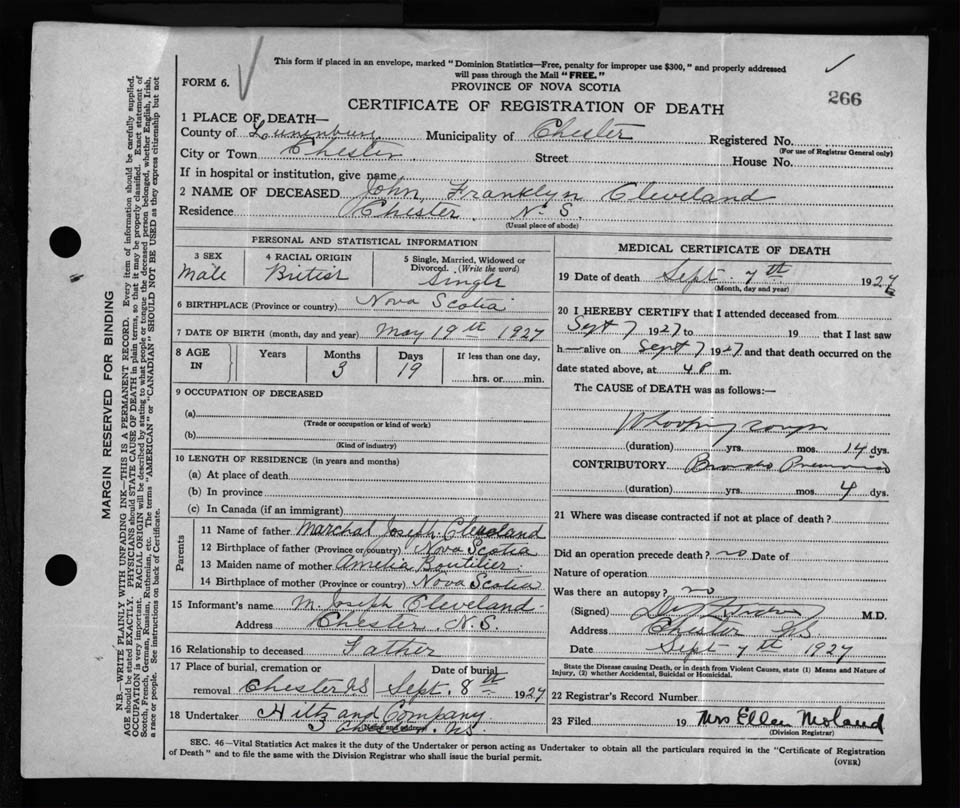 This form if placed in an envelope, marked "Dominion Statistics—Free, penalty for improper use $300," and properly addressed
will pass through the Mail "FREE."
FORM 6.
PROVINCE OF NOVA SCOTIA
266
CERTIFICATE OF REGISTRATION OF DEATH
1 PLACE OF DEATH—
County of Lunenburg Municipality of Chester Registered No.
(For use of Registrar General only)
City or Town Chester Street House No.
If in hospital or institution, give name
2 NAME OF DECEASED John Franklyn Cleveland
Residence Chester. N.S.
(Usual place of abode)
PERSONAL AND STATISTICAL INFORMATION
3 SEX 4 RACIAL ORIGIN 5 Single, Married, Widowed or Divorced. (Write the word)
Male British Single
6 BIRTHPLACE (Province or country) Nova Scotia
7 DATE OF BIRTH (month, day and year) May 19th 1927
8 AGE IN Years Months Days If less than one day,
3 19 hrs. or min.
9 OCCUPATION OF DECEASED
(a)
(Trade or occupation or kind of work)
(b)
(Kind of industry)
10 LENGTH OF RESIDENCE (in years and months)
(a) At place of death
(b) In province
(c) In Canada (if an immigrant)
Parents
11 Name of father Marchal Joseph Cleveland
12 Birthplace of father (Province or country) Nova Scotia
13 Maiden name of mother Amelia Boutilier
14 Birthplace of mother (Province or country) Nova Scotia
15 Informant's name M. Joseph Cleveland
Address Chester. N.S.
16 Relationship to deceased Father
17 Place of burial, cremation or Date of burial
removal Chester NS Sept. 8th 1927
18 Undertaker Hiltz and Company
NS.
MEDICAL CERTIFICATE OF DEATH
19 Date of death Sept. 7th 1927
(Month, day and year)
20 I HEREBY CERTIFY that I attended deceased from
Sept 7 1927 to 19 that I last saw
h— alive on Sept 7 1927 and that death occurred on the
date stated above, at 4 P m.
The CAUSE of DEATH was as follows:—
Whooping cough
(duration) yrs. mos. 14 dys.
CONTRIBUTORY Broncho Pneumonia
(duration) yrs. mos. 4 dys.
21 Where was disease contracted if not at place of death?
Did an operation precede death? no Date of
Nature of operation
Was there an autopsy? no
(Signed) M.D.
Address Chester NS.
Date Sept 7th 1927
State the Disease causing Death, or in death from Violent Causes, state (1) Means and Nature of
Injury, (2) whether Accidental, Suicidal or Homicidal.
22 Registrar's Record Number
23 Filed 19 Mrs Ellen Moland
(Division Registrar)
SEC. 46—Vital Statistics Act makes it the duty of the Undertaker or person acting as Undertaker to obtain all the particulars required in the "Certificate of Registration
of Death" and to file the same with the Division Registrar who shall issue the burial permit.
(OVER)
MARGIN RESERVED FOR BINDING
N.B.—WRITE PLAINLY WITH UNFADING INK—THIS IS A PERMANENT RECORD. Every item of information should be carefully supplied.
AGE should be stated EXACTLY. PHYSICIANS should STATE CAUSE OF DEATH in plain terms, so that it may be properly classified. Exact statement of
OCCUPATION is very important. RACIAL ORIGIN will be described by stating to what people or tongue the deceased person belonged, whether English, Irish,
Scotch, French, German, Russian, Ruthenian, etc. The terms "AMERICAN" or "CANADIAN" SHOULD NOT BE USED as they express citizenship but not
a race or people. See instructions on back of Certificate.